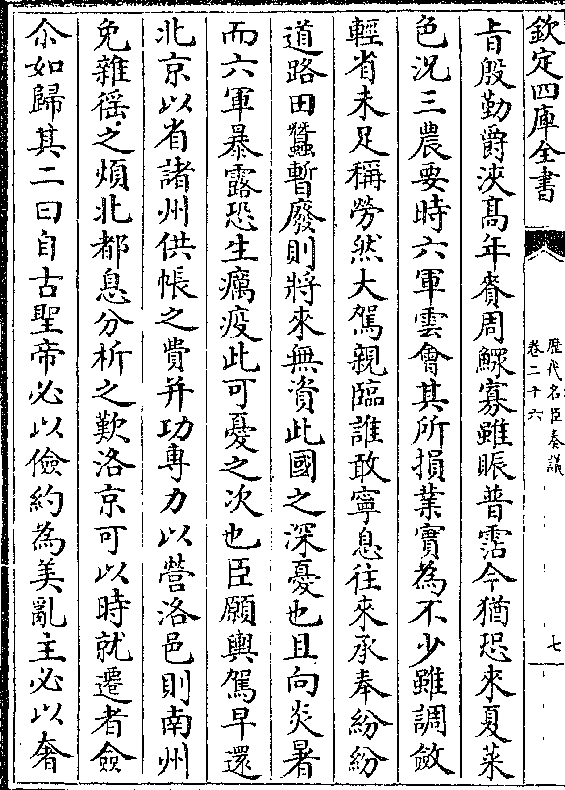 欽定四庫全書
歴代名臣奏議
卷二十六
七
旨殷勤爵浹髙年賚周鰥寡雖賑普霑今猶恐來夏菜
色況三農要時六軍雲會其所損業實為不少雖調斂
輕省未足稱勞然大駕親臨誰敢寧息往來承奉紛紛
道路田蠶暫廢則將來無資此國之深憂也且向炎暑
而六軍暴露恐生癘疫此可憂之次也臣願輿駕早還
北京以省諸州供帳之費并功專力以營洛邑則南州
免雜徭之煩北都息分析之歎洛京可以時就遷者僉
尒如歸其二曰自古聖帝必以儉約為美亂主必以奢